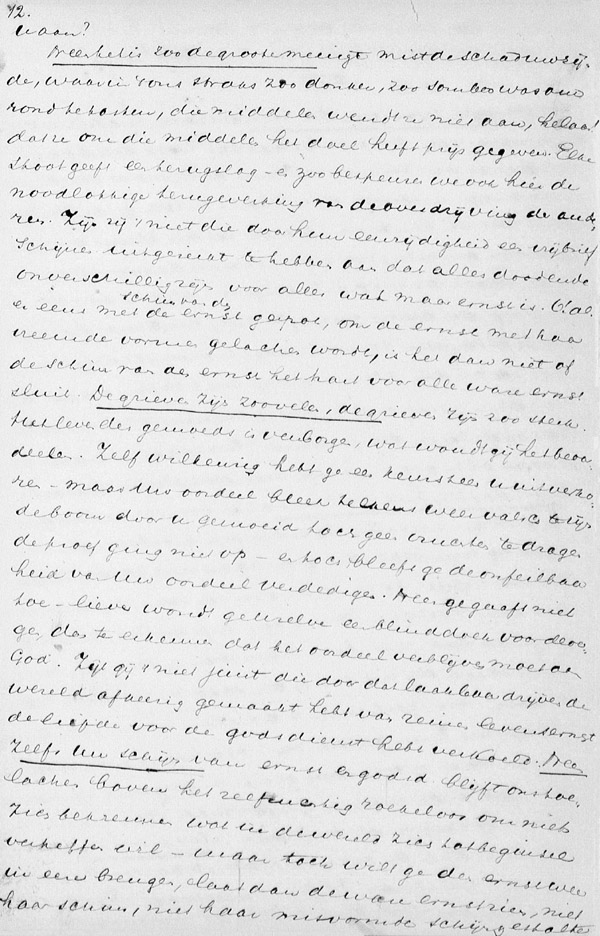 12.
waan?
Neen het is zoo de groote menigt mist de schaduwzij-
de, waarin 't ons straks zoo donker, zoo somber was aan
rond te tasten, die middelen wendt ze niet aan, helaas!
dat ze om die middelen het doel heeft prijs gegeven. Elke
stoot geeft een terugslag – en zoo bespeuren we ook hier de
noodlottige terugwerking van de overdrijving de ande-
ren. Zijn zij 't niet die door hun eenzijdigheid een vrijbrief
schijnen uitgereikt te hebben aan dat alles doodende
onverschillig zijn voor alles wat maar ernst is. O! al.
er eens met de schijn van de ernst gespot, om de ernst met haar
vreemde vormen gelachen wordt, is het dan niet of
de schijn van den ernst het hart voor alle ware ernst
sluit. De grieven zijn zoovele, de grieven zijn zoo sterk.
Het leven des gemoeds is verborgen, wat waagdt gij het beoor-
deelen. Zelf willekeurig hebt ge een keurs u uitverko-
ren – maar Uw oordeel bleek telkens weer valsch te zijn
de boom door u gemoeid toch geen vruchten te dragen
de proef ging niet op – en toch bleeft ge de onfeilbaar
heid van Uw oordeel verdedigen. Neen ge gaaft niet
toe – liever wondt ge uzelve een blinddoek voor de oo-
gen, dan te erkennen dat het oordeel verblijven moet aan
God. Zijt gij 't niet juist die door dat laakbaar drijven de
wereld afkeerig gemaakt hebt van reinen levensernst
de liefde voor de godsdienst hebt verkoeld. Neen
Zelfs Uw schijn van ernst en godsd blijft ons toe-
lachen boven het zelfen roekeloos om niets
zich bekreunen wat in de wereld zich tot beginsel
verheffen wil – maar toch wilt ge den ernst weer
in eere brengen, laat dan de ware ernst zien, niet
haar schijn, niet haar misvormde schijngestalte